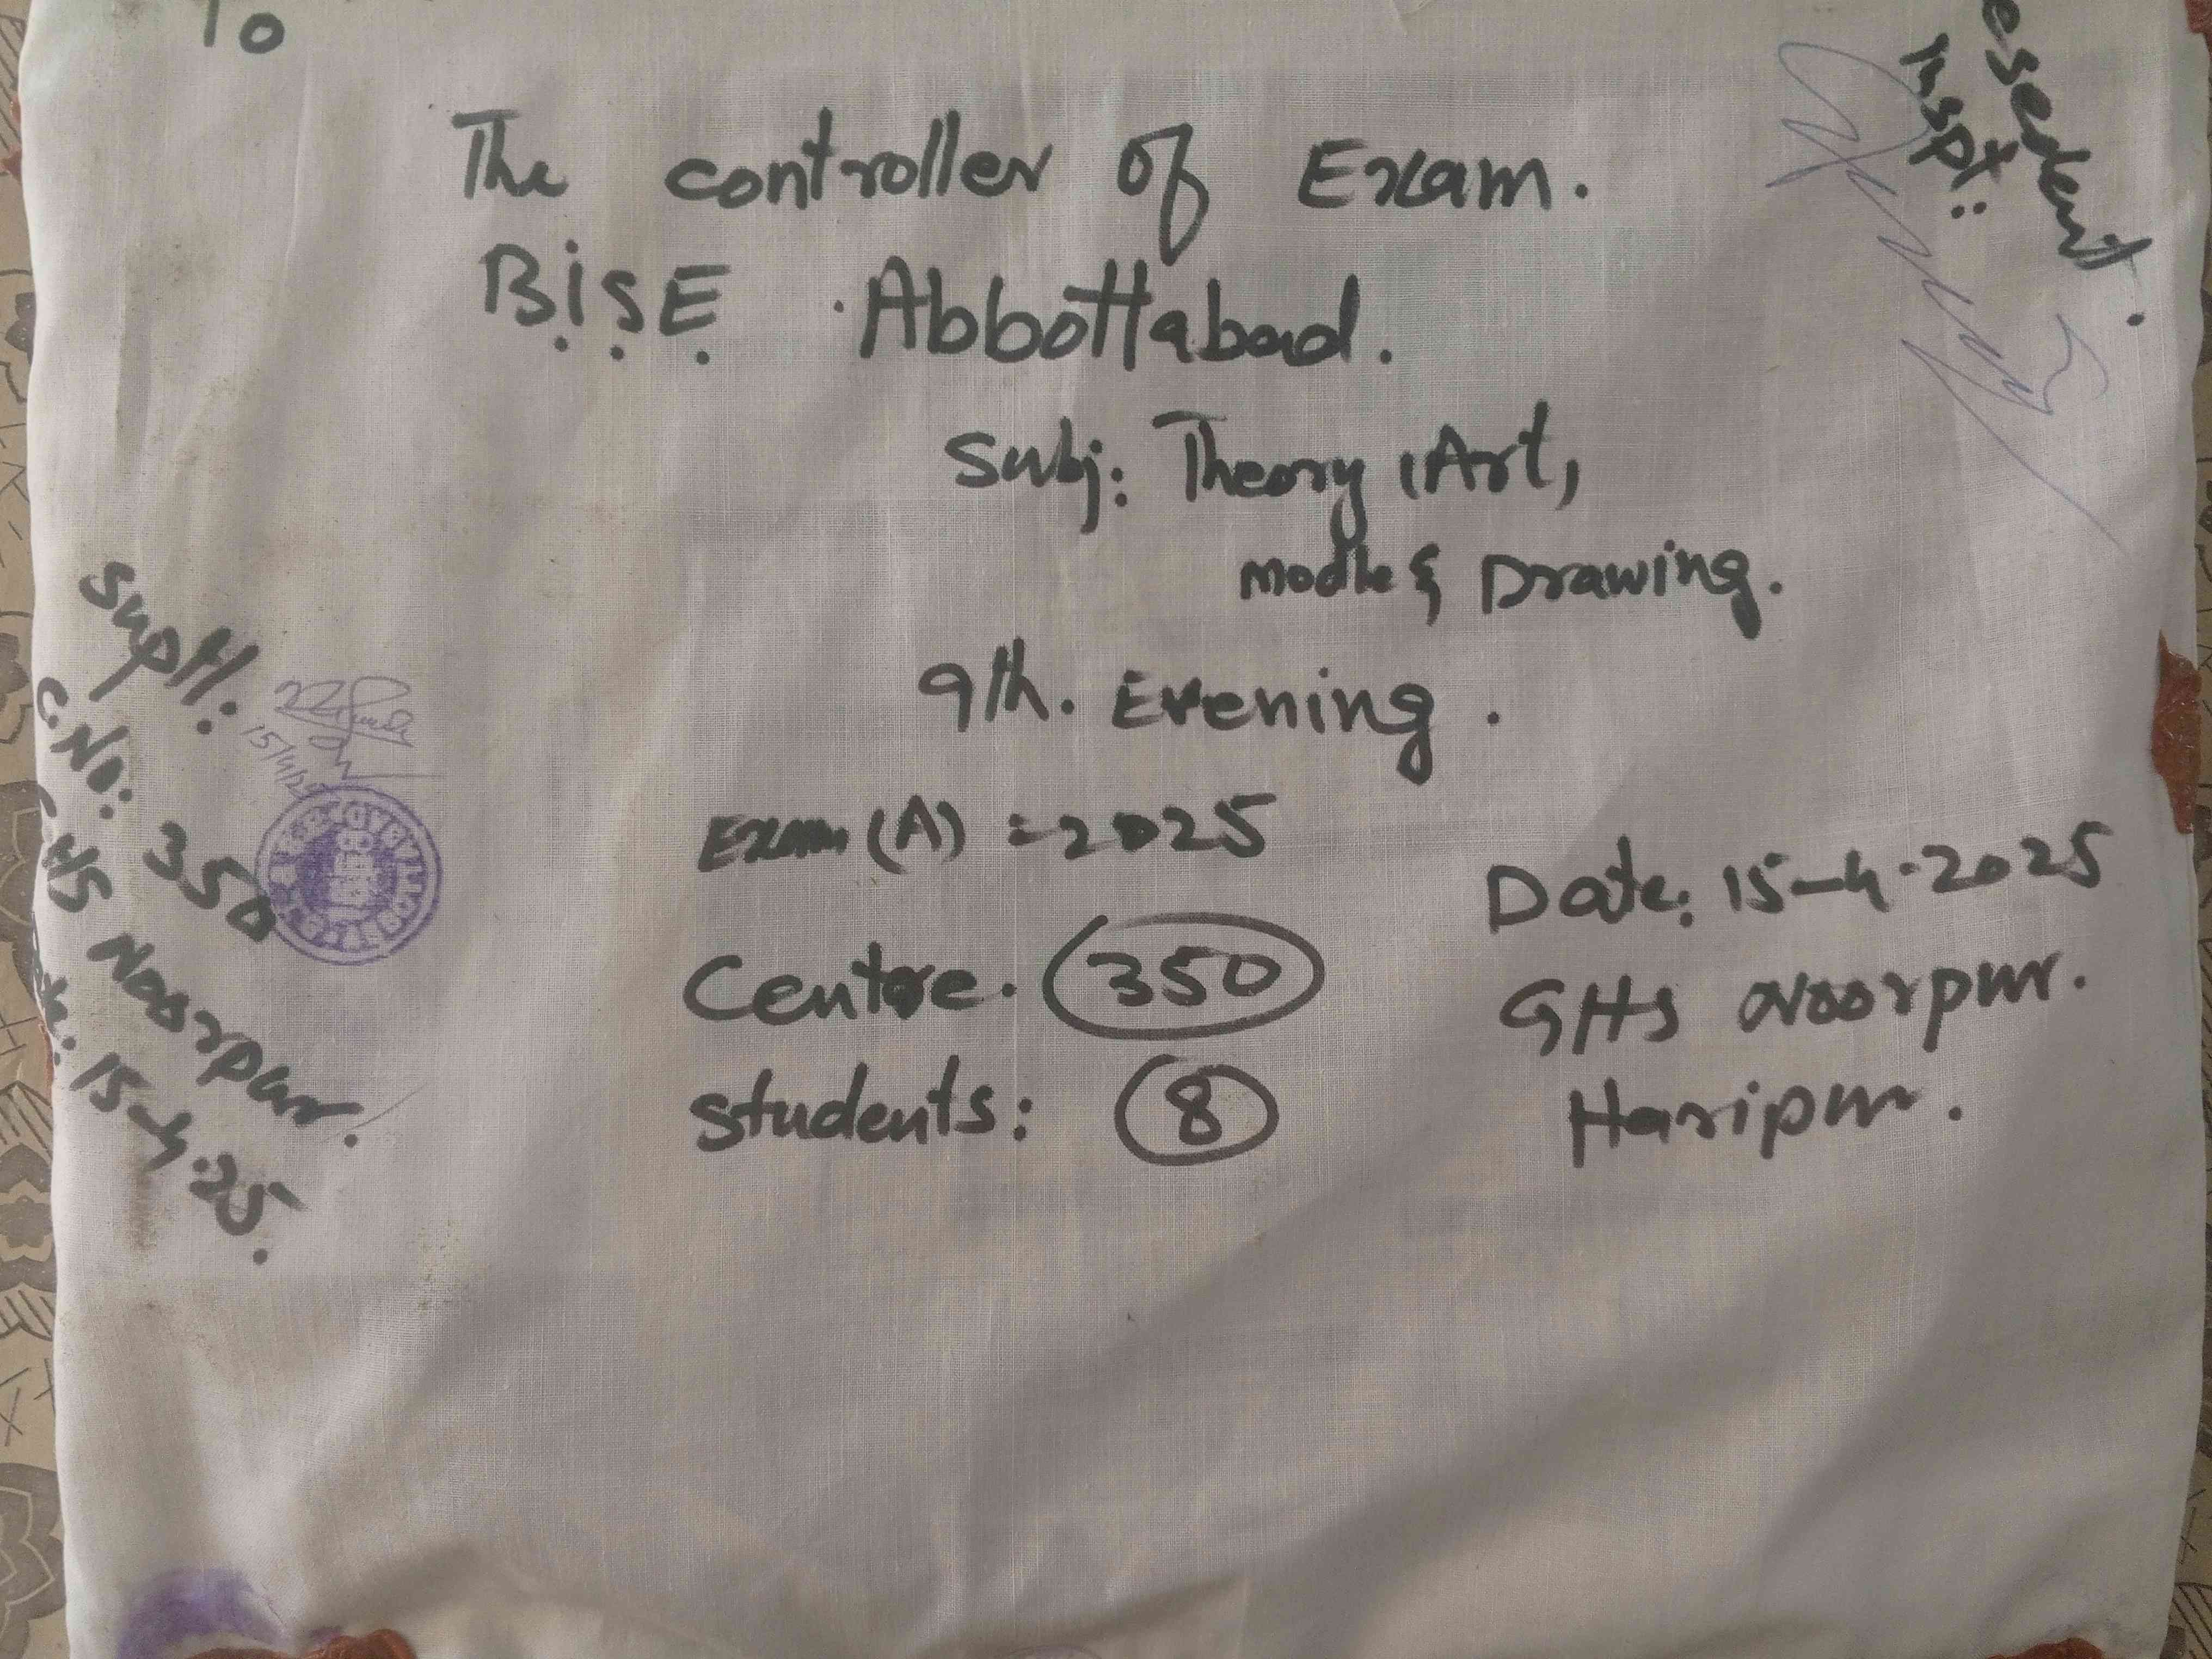 To
The controller of Exam.
B.I.S.E Abbottabad.
Subj: Theory (Art,
Modle & Drawing.
9th. Evening.
Exam (A) = 2025
Centre. 350
Students: 8
Date: 15-4-2025
GHS Noorpur.
Haripur.
Suptt:
C.No: 350
GHS Noorpur.
15-4-25.
15/4/25
Inspt: